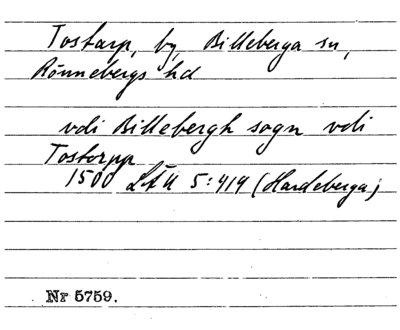 Tostarp, by, Billeberga sn,
Rönnebergs hd
vdi Billebergh sogn vdi
Tostorpp
1500 LÄU 5:414 (Hardeberga)
Nr 5759.